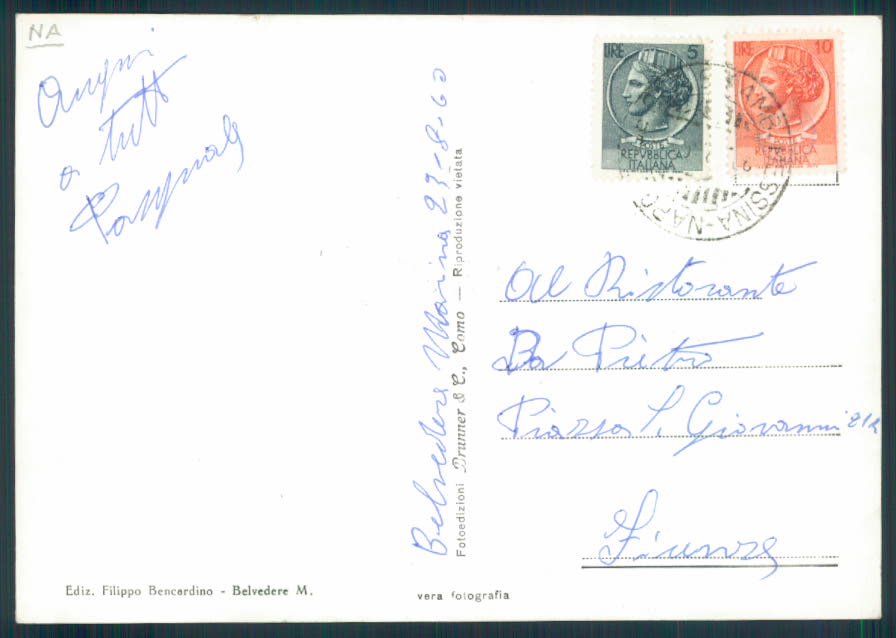 NA
Auguri
a tutti
Pasquale
Belvedere Marina 23-8-60
Fotoedizioni Brunner & C., Como — Riproduzione vietata
LIRE 5
POSTE
REPVBBLICA
ITALIANA
LIRE 10
POSTE
REPVBBLICA
ITALIANA
AMB MESSINA-NAPO
Al Ristorante
Da Pietro
Piazza S. Giovanni
Firenze
Ediz. Filippo Bencardino - Belvedere M.
vera fotografia